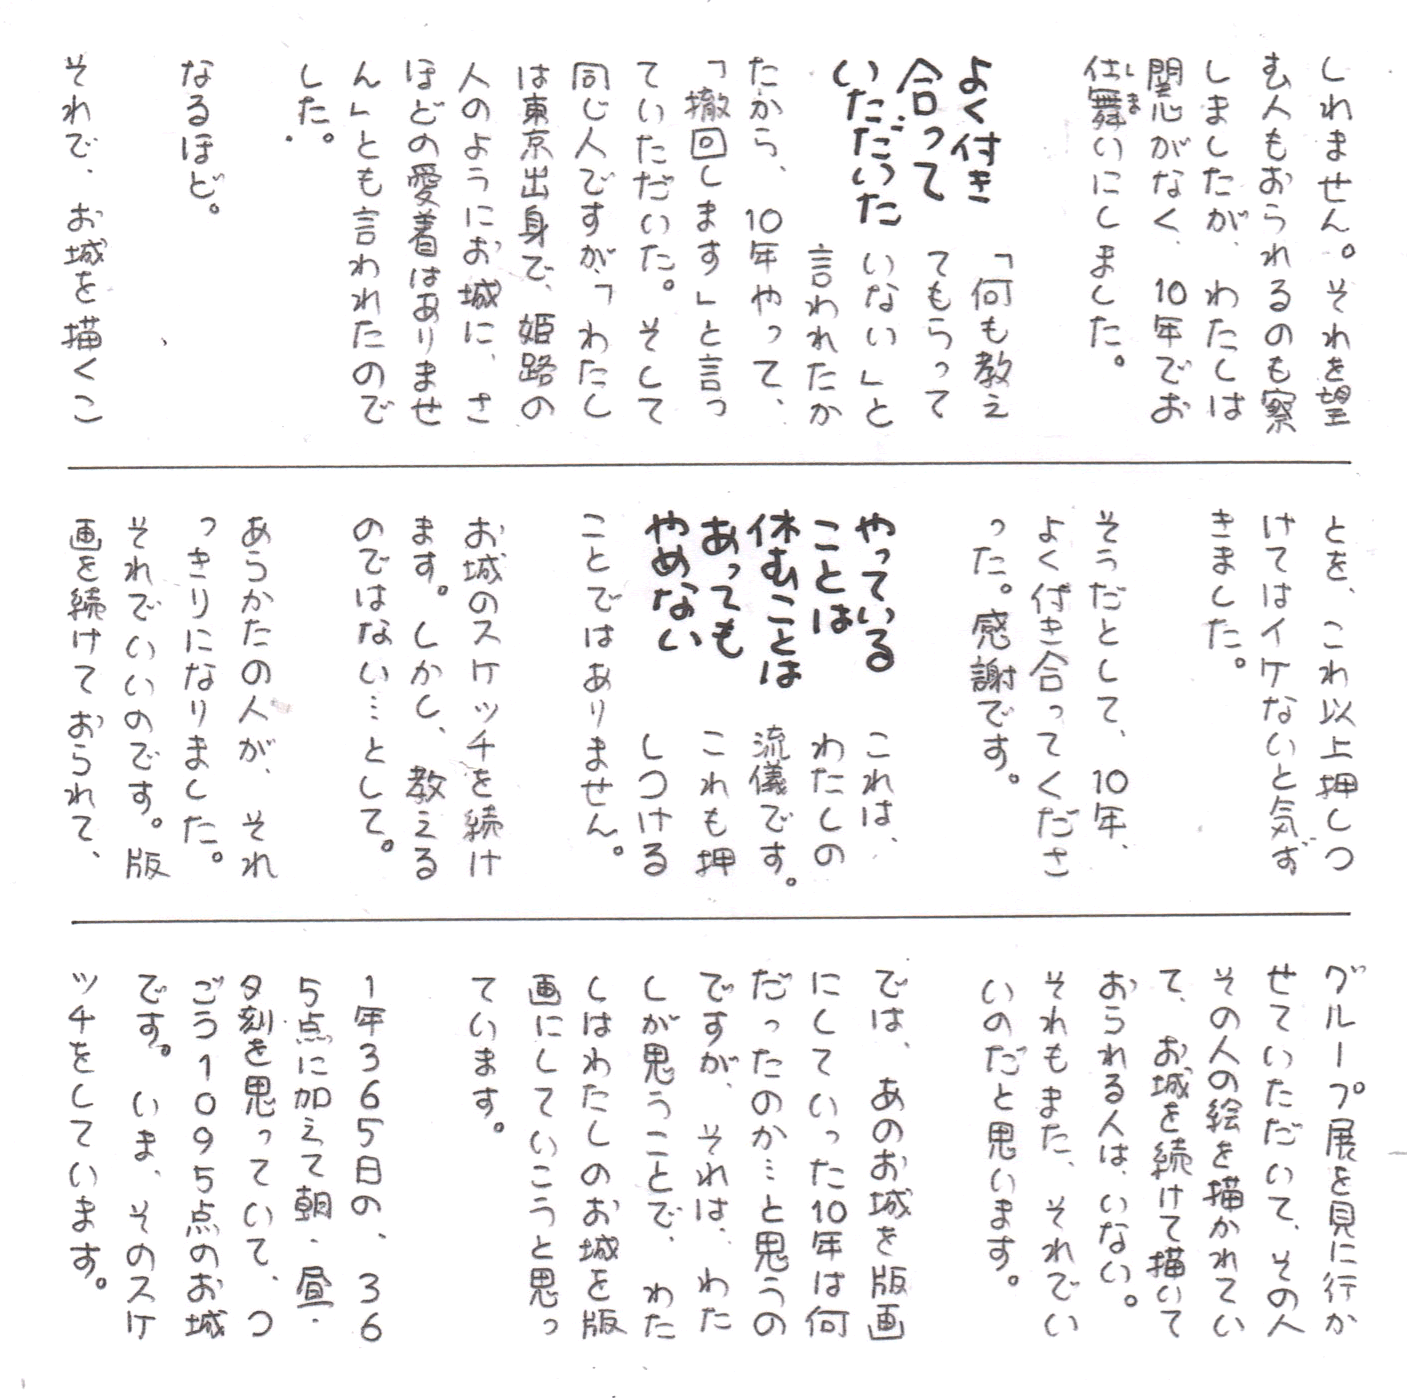 しれません。それを望
む人もおられるのも察
しましたが、わたしは
関心がなく、10年でお
仕舞いにしました。
しま
よく付き
合って
いただいた
「何も教え
てもらって
いない」と
言われたか
たから、10年やって、
「撤回します」と言っ
ていただいた。そして
同じ人ですが、「わたし
は東京出身で、姫路の
人のようにお城に、さ
ほどの愛着はありませ
ん」とも言われたので
した。
なるほど。
それで、お城を描くこ
とを、これ以上押しつ
けてはイケないと気ず
きました。
そうだとして、10年、
よく付き合ってくださ
った。感謝です。
やっている
ことは
休むことは
あっても
やめない
これは、
わたしの
流儀です。
これも押
しつける
ことではありません。
お城のスケッチを続け
ます。しかし、教える
のではない…として。
あらかたの人が、それ
っきりになりました。
それでいいのです。版
画を続けておられて、
グループ展を見に行か
せていただいて、その人
その人の絵を描かれてい
て、お城を続けて描いて
おられる人は、いない。
それもまた、それでい
いのだと思います。
では、あのお城を版画
にしていった10年は何
だったのか…と思うの
ですが、それは、わた
しが思うことで、わた
しはわたしのお城を版
画にしていこうと思っ
ています。
1年365日の、36
5点に加えて朝・昼・
夕刻を思っていて、つ
ごう1095点のお城
です。いま、そのスケ
ッチをしています。